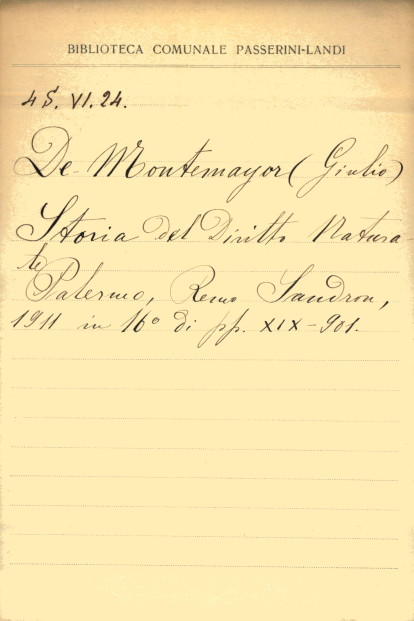 BIBLIOTECA COMUNALE PASSERINI-LANDI
4 S. VI. 24.
De Montemayor (Giulio)
Storia del Diritto Natura-
le
Palermo, Remo Sandron,
1911 in 16º di pp. XIX-901.